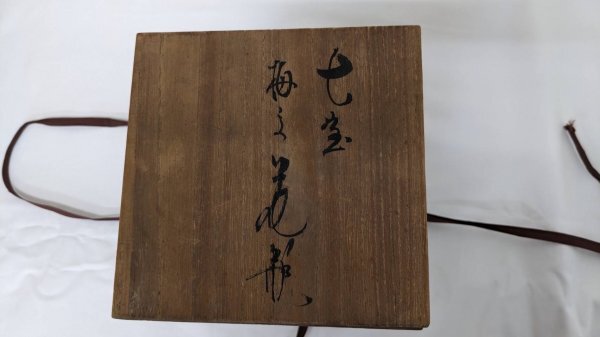 七宝
梅之花瓶